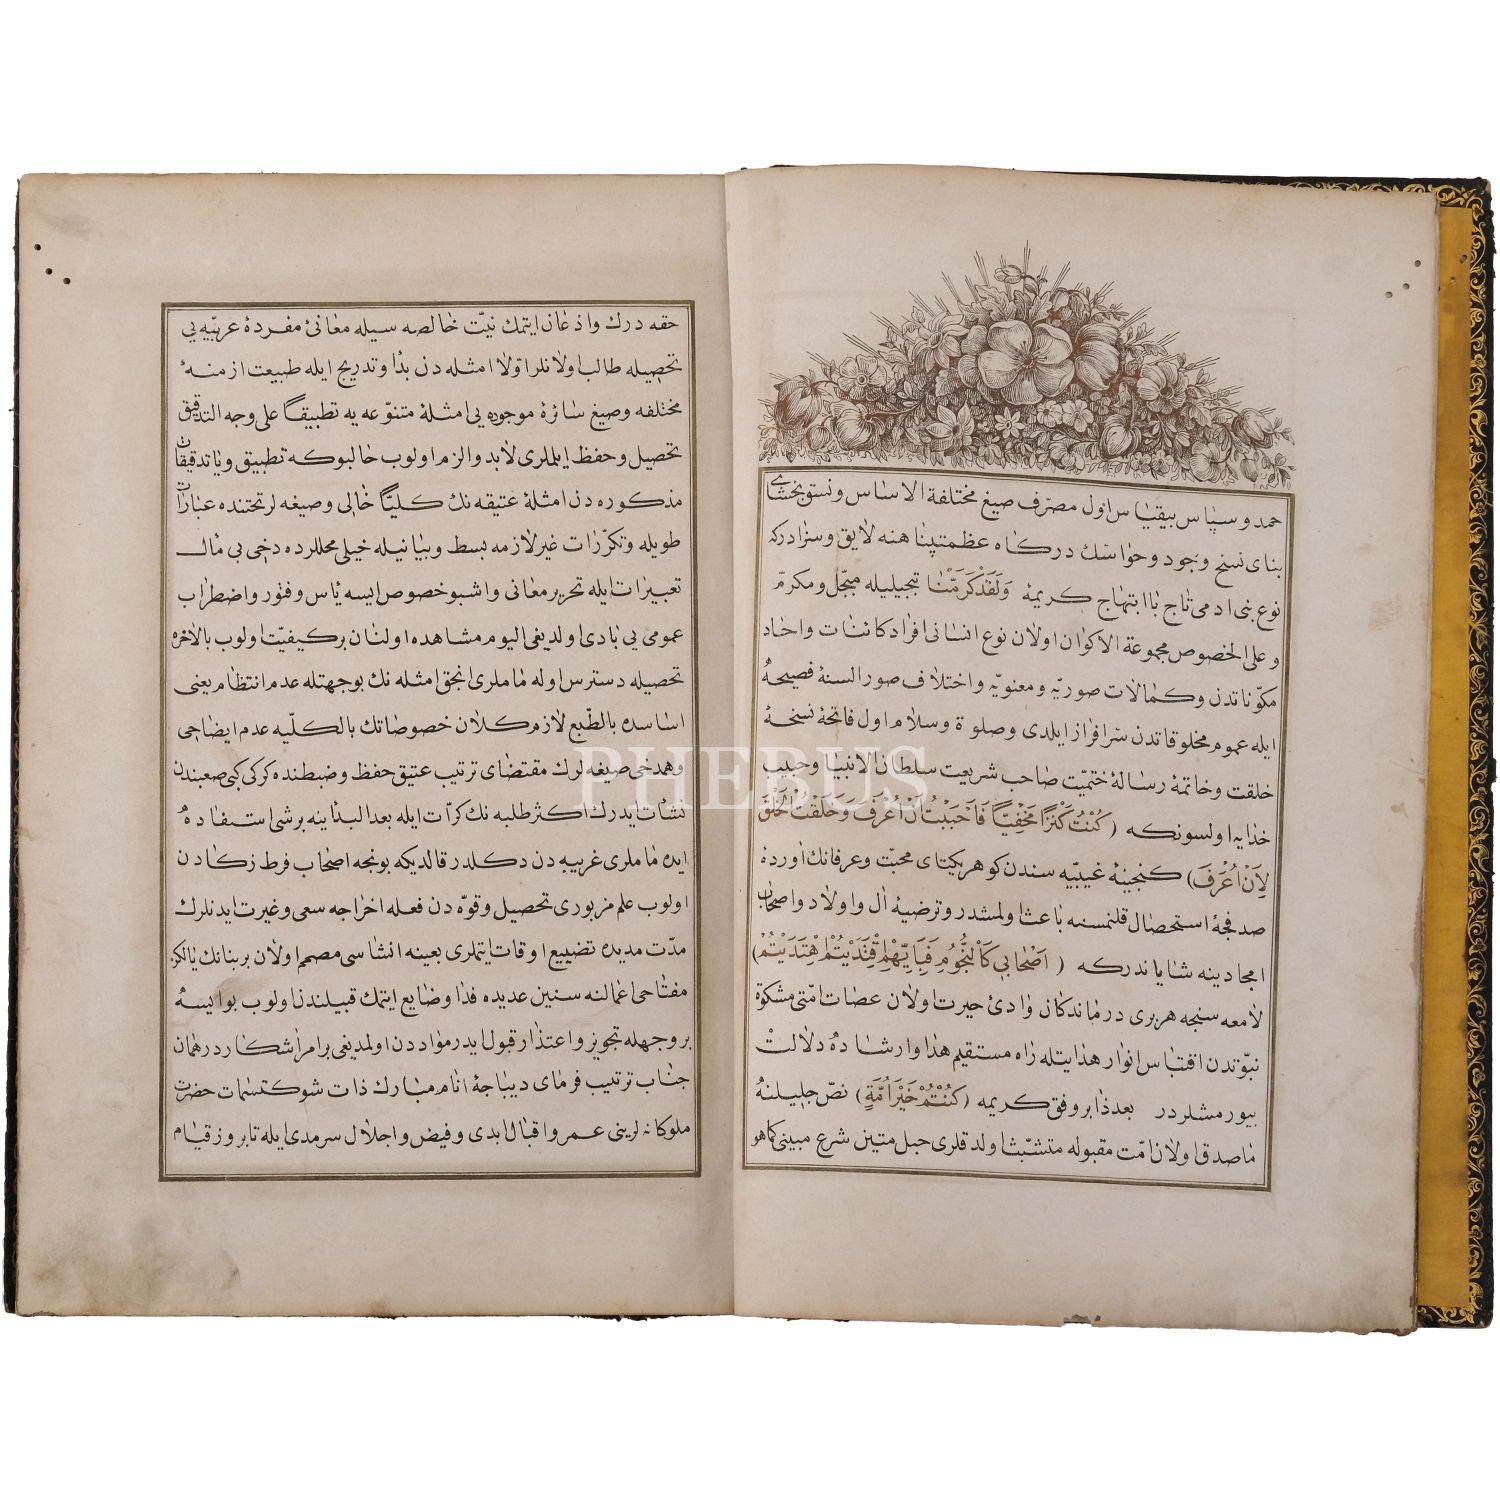 حمد و سپاس بیقیاس اول مصرّف صیغ مختلفة الاساس و نستو بخشای
بنای نسخ وجود و حواسك درکاه عظمتپناهنه لایق و سزادرکه
نوع بنی ادمی تاج باابتهاج کریمۀ وَلَقَدْ کَرَّمْنَا تبجیلیله مبجّل و مکرّم
و علی الخصوص مجموعة الاکوان اولان نوع انسانی افراد کائنات و احاد
مکوّناتدن و کمالات صوریّه و معنویّه و اختلاف صور السنۀ فصیحهٔ
ایله عموم مخلوقاتدن سرافراز ایلدی وصلوة وسلام اول فاتحۀ نسخۀ
خلقت و خاتمۀ رسالۀ ختمیّت صاحب شریعت سلطان الانبیا و حبیب
خدایه اولسونکه (کُنْتُ کَنْزًا مَخْفِیًّا فَاَحْبَبْتُ اَنْ اُعْرَفَ وَخَلَقْتُ الْخَلْقَ
لِاَنْ اُعْرَفَ) کنجینۀ غیبیّه سندن کوهر یکتای محبّت و عرفانك اوردۀ
صدفجۀ استحصال قلنمسنه باعث اولمشدر و ترضیۀ ال و اولاد و اصحاب
امجادینه شایاندرکه (اَصْحَابِی کَالنُّجُومِ فَبِاَیِّهِمْ اقْتَدَیْتُمْ اهْتَدَیْتُمْ)
لامعه سنجه هربری درماندکان وادئ حیرت اولان عصات امّتی مشکوة
نبوّتدن اقتباس انوار هدایتله راه مستقیم هدا و ارشاده دلالت
بیورمشلردر بعد ذا بر وفق کریمه (کُنْتُمْ خَیْرَ اُمَّةٍ) نصّ جلیلنهٔ
ماصدق اولان امّت مقبوله متشبّث اولدقلری حبل متین شرع مبینی کما هو
حقه درك و اذعان ایتمك نیّت خالصه سیله معانئ مفردۀ عربیّه یی
تحصیله طالب اولانلر اوّلا امثله دن بدأ و تدریج ایله طبیعت ازمنۀ
مختلفه و صیغ سائرۀ موجوده یی امثلۀ متنوّعه یه تطبیقًا علی وجه التدقیق
تحصیل و حفظ ایلملری لابد و الزم اولوب حالبوکه تطبیق و یا تدقیقات
مذکوره دن امثلۀ عتیقه نك کلیًّا خالی و صیغه لر تحتنده عبارات
طویله و تکرّرات غیر لازمه بسط و بیانیله خیلی محللرده دخی بی مأل
تعبیرات ایله تحریر معانی و اشبو خصوص ایسه یأس و فتور و اضطراب
عمومی یی بادی اولدیغی الیوم مشاهده اولنان بر کیفیّت اولوب بالاخره
تحصیله دسترس اوله ماملری انجق امثله نك بوجهتله عدم انتظام یعنی
اساسده بالطّبع لازم کلان خصوصاتك بالکلّیه عدم ایضاحی
و همدخی صیغه لرك مقتضای ترتیب عتیق حفظ و ضبطنده کرکی کبی صعبندن
نشأت ایدرك اکثر طلبه نك کرّات ایله بعد البدأ ینه برشی استفاده
ایده ماملری غریبه دن دکلدر قالدیکه بونجه اصحاب فرط زکادن
اولوب علم مزبوری تحصیل و قوّه دن فعله اخراجه سعی و غیرت ایدنلرك
مدّت مدیده تضییع اوقات ایتملری بعینه انشاسی مصمم اولان بر بنانك یالکز
مفتاحی اعمالنه سنین عدیده فدا و ضایع ایتمك قبیلندن اولوب بو ایسه
بر وجهله تجویز و اعتذار قبول ایدر مواددن اولمدیغی بر امر اشکاردر همان
جناب ترتیب فرمای دیباجۀ انام مبارك ذات شوکتسمات حضرت
ملوکانه لرینی عمر و اقبال ابدی و فیض و اجلال سرمدی ایله تا بروز قیام
PHEBUS